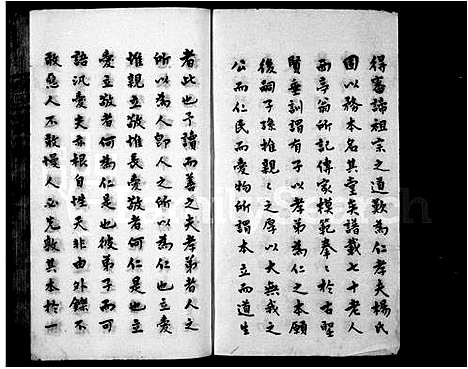 得審諦祖宗之道歟為仁孝夫楊氏
固以務本名其堂矣譜載七十老人
西亭翁所記傳家模範拳々於古聖
賢垂訓謂有子以孝弟為仁之本願
後嗣子孫推親々之厚以大無我之
公而仁民而愛物所謂本立而道生
者此也予讀而善之夫孝弟者人之
所以為人即人之所以為仁也立愛
惟親立敬惟長愛敬者何仁是也立
愛立敬者何為仁是也彼弟子而可
語汎愛夫亦根自性天非由外鑠不
敢惡人不敢慢人必先敦其本於一